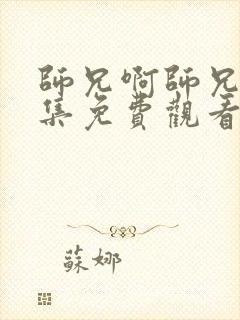 師兄啊師兄
集免費觀看
蘇娜